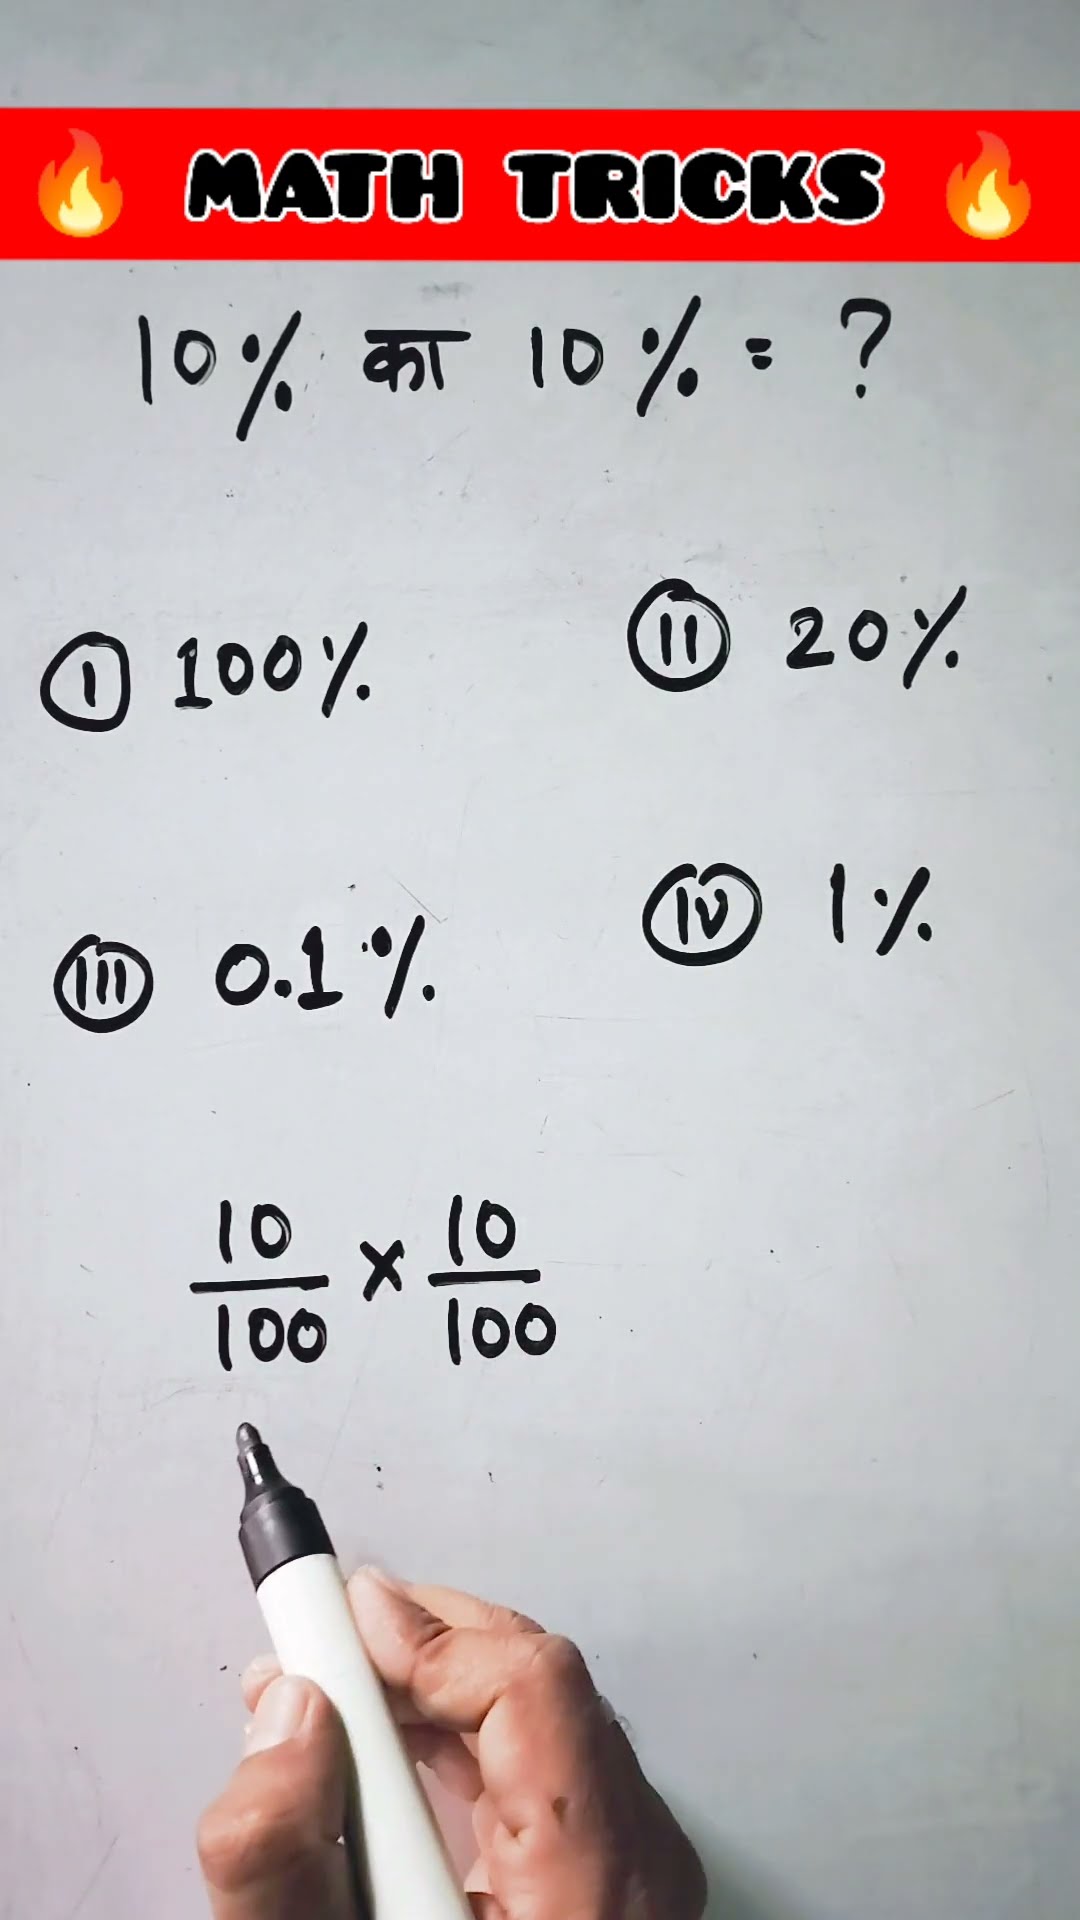 🔥 MATH TRICKS 🔥
10% का 10% = ?
(I) 100% (II) 20%
(III) 0.1% (IV) 1%
10/100 × 10/100